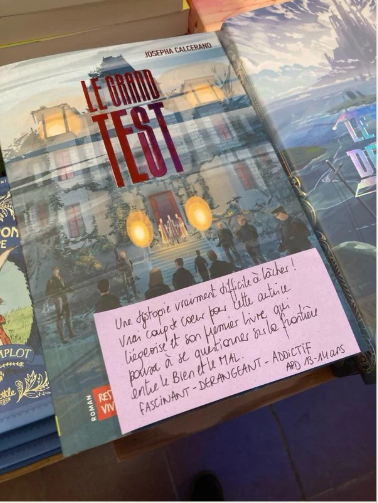 JOSEPHA CALCERANO
LE GRAND
TEST
Une dystopie vraiment difficile à lâcher !
Vrai coup de coeur pour cette autrice
liégeoise et son premier livre qui
pousse à se questionner sur la frontière
entre le Bien et le MAL.
FASCINANT - DÉRANGEANT - ADDICTIF
APD 13-14 ans
ROMAN